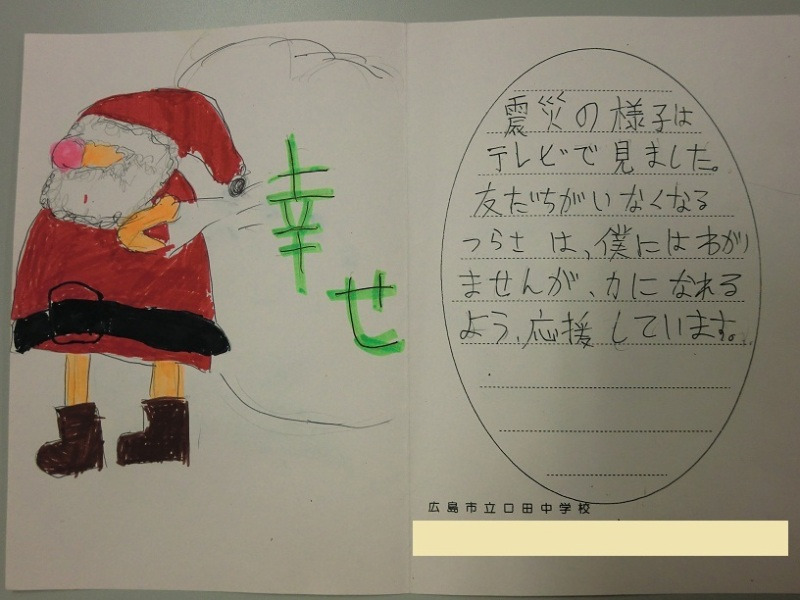 幸せ
震災の様子は
テレビで見ました。
友だちがいなくなる
つらさは、僕にはわかり
ませんが、力になれる
よう、応援しています。
広島市立口田中学校